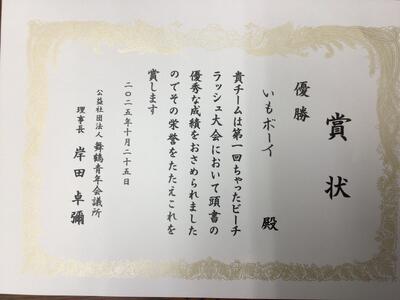 賞状
優勝
いもボーイ 殿
貴チームは第一回ちゃったビーチ
ラッシュ大会において頭書の
優秀な成績をおさめられました
のでその栄誉をたたえこれを
賞します
二〇二五年十月二十五日
公益社団法人 舞鶴青年会議所
理事長 岸田卓彌